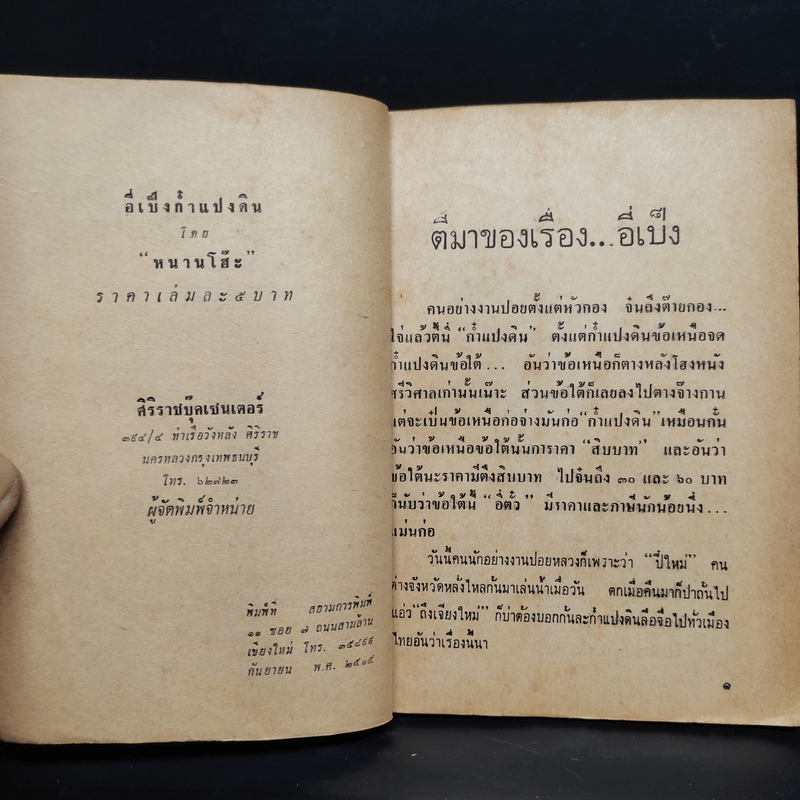 อี่เบ็งกำแปงดิน
โดย
“หนานโฮ๊ะ”
ราคาเล่มละ ๕ บาท
ศิริราชบุ๊คเซนเตอร์
๓๙๔/๔ ท่าเรือวังหลัง ศิริราช
นครหลวงกรุงเทพธนบุรี
โทร. ๖๒๗๒๓
ผู้จัดพิมพ์จำหน่าย
พิมพ์ที่ สยามการพิมพ์
๑๑ ซอย ๗ ถนนสามล้าน
เชียงใหม่ โทร. ๓๕๘๙๙
กันยายน พ.ศ. ๒๕๑๕
ตี้มาของเรื่อง...อี่เบ็ง
คนอย่างงานปอยตั้งแต่หัวกอง จ๋นถึงต๊ายกอง...
ใจ่แล้วตี้นี่ “กำแปงดิน” ตั้งแต่กำแปงดินข้อเหนือจด
กำแปงดินข้อใต้... อันว่าข้อเหนือก็ตางหลังโฮงหนัง
ศรีวิศาลเก่านั้นเน๊าะ ส่วนข้อใต้ก็เลยลงไปตางจ๊างกาน
แต่จะเป็นข้อเหนือก่อจ่างมันก่อ “กำแปงดิน” เหมือนกั๋น
อันว่าข้อเหนือข้อใต้นั้นการาคา “สิบบาท” และอันว่า
ข้อใต้นะราคามีตึงสิบบาท ไปจ๋นถึง ๓๐ และ ๖๐ บาท
ก็นับว่าข้อใต้นี้ “อี่ตั๋ว” มีราคาและภาษีนักน้อยนึ่ง...
แม่นก่อ
วันนี้คนนักอย่างงานปอยหลวงก็เพราะว่า “ปี๋ใหม่” คน
ต่างจังหวัดหลั่งไหลกันมาเล่นน้ำเมื่อวัน ตกเมื่อคืนมาก็ปากั๋นไป
แอ่ว “ถึงเจียงใหม่” ก็บ่าต้องบอกกันละกำแปงดินลือจื๊อไปทั่วเมือง
ไทยอันว่าเรื่องนี้นา
๑